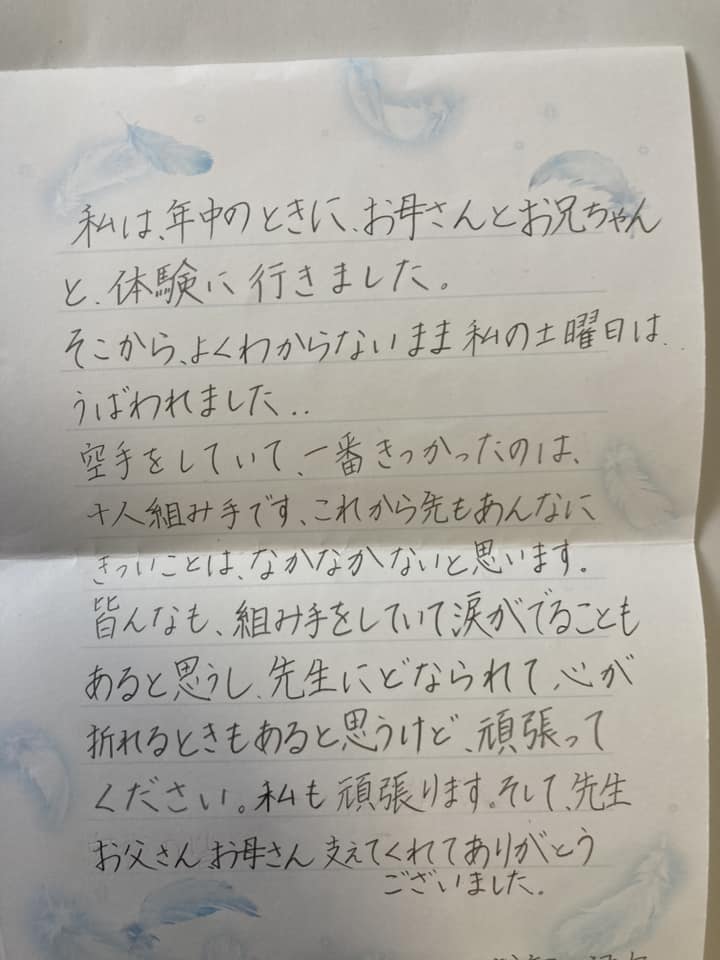 私は、年中のときに、お母さんとお兄ちゃん
と、体験に行きました。
そこから、よくわからないまま私の土曜日は、
うばわれました..
空手をしていて、一番きつかったのは、
十人組み手です、これから先もあんなに
きついことは、なかなかないと思います。
皆んなも、組み手をしていて涙がでることも
あると思うし、先生にどなられて、心が
折れるときもあると思うけど、頑張って
ください。私も頑張ります。そして、先生
お父さん お母さん 支えてくれてありがとう
ございました。